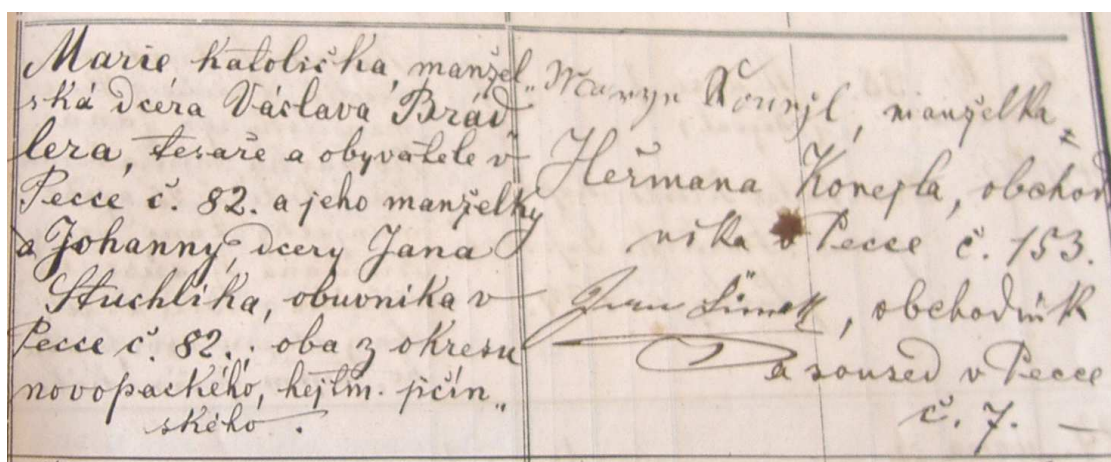 Marie katolička, manžel„
ská dcera Václava Brád„
lera, tesaře a obyvatele v
Pecce č. 82. a jeho manželky
a Johanny, dcery Jana
Stuchlika, obuvnika v
Pecce č. 82., oba z okresu
novopackého, hejtm. jičín„
ského.
manželka
Heřmana Konejla, obchod
nika v Pecce č. 153.
Jan Šimek, obchodnik
a soused v Pecce
č. 7. —